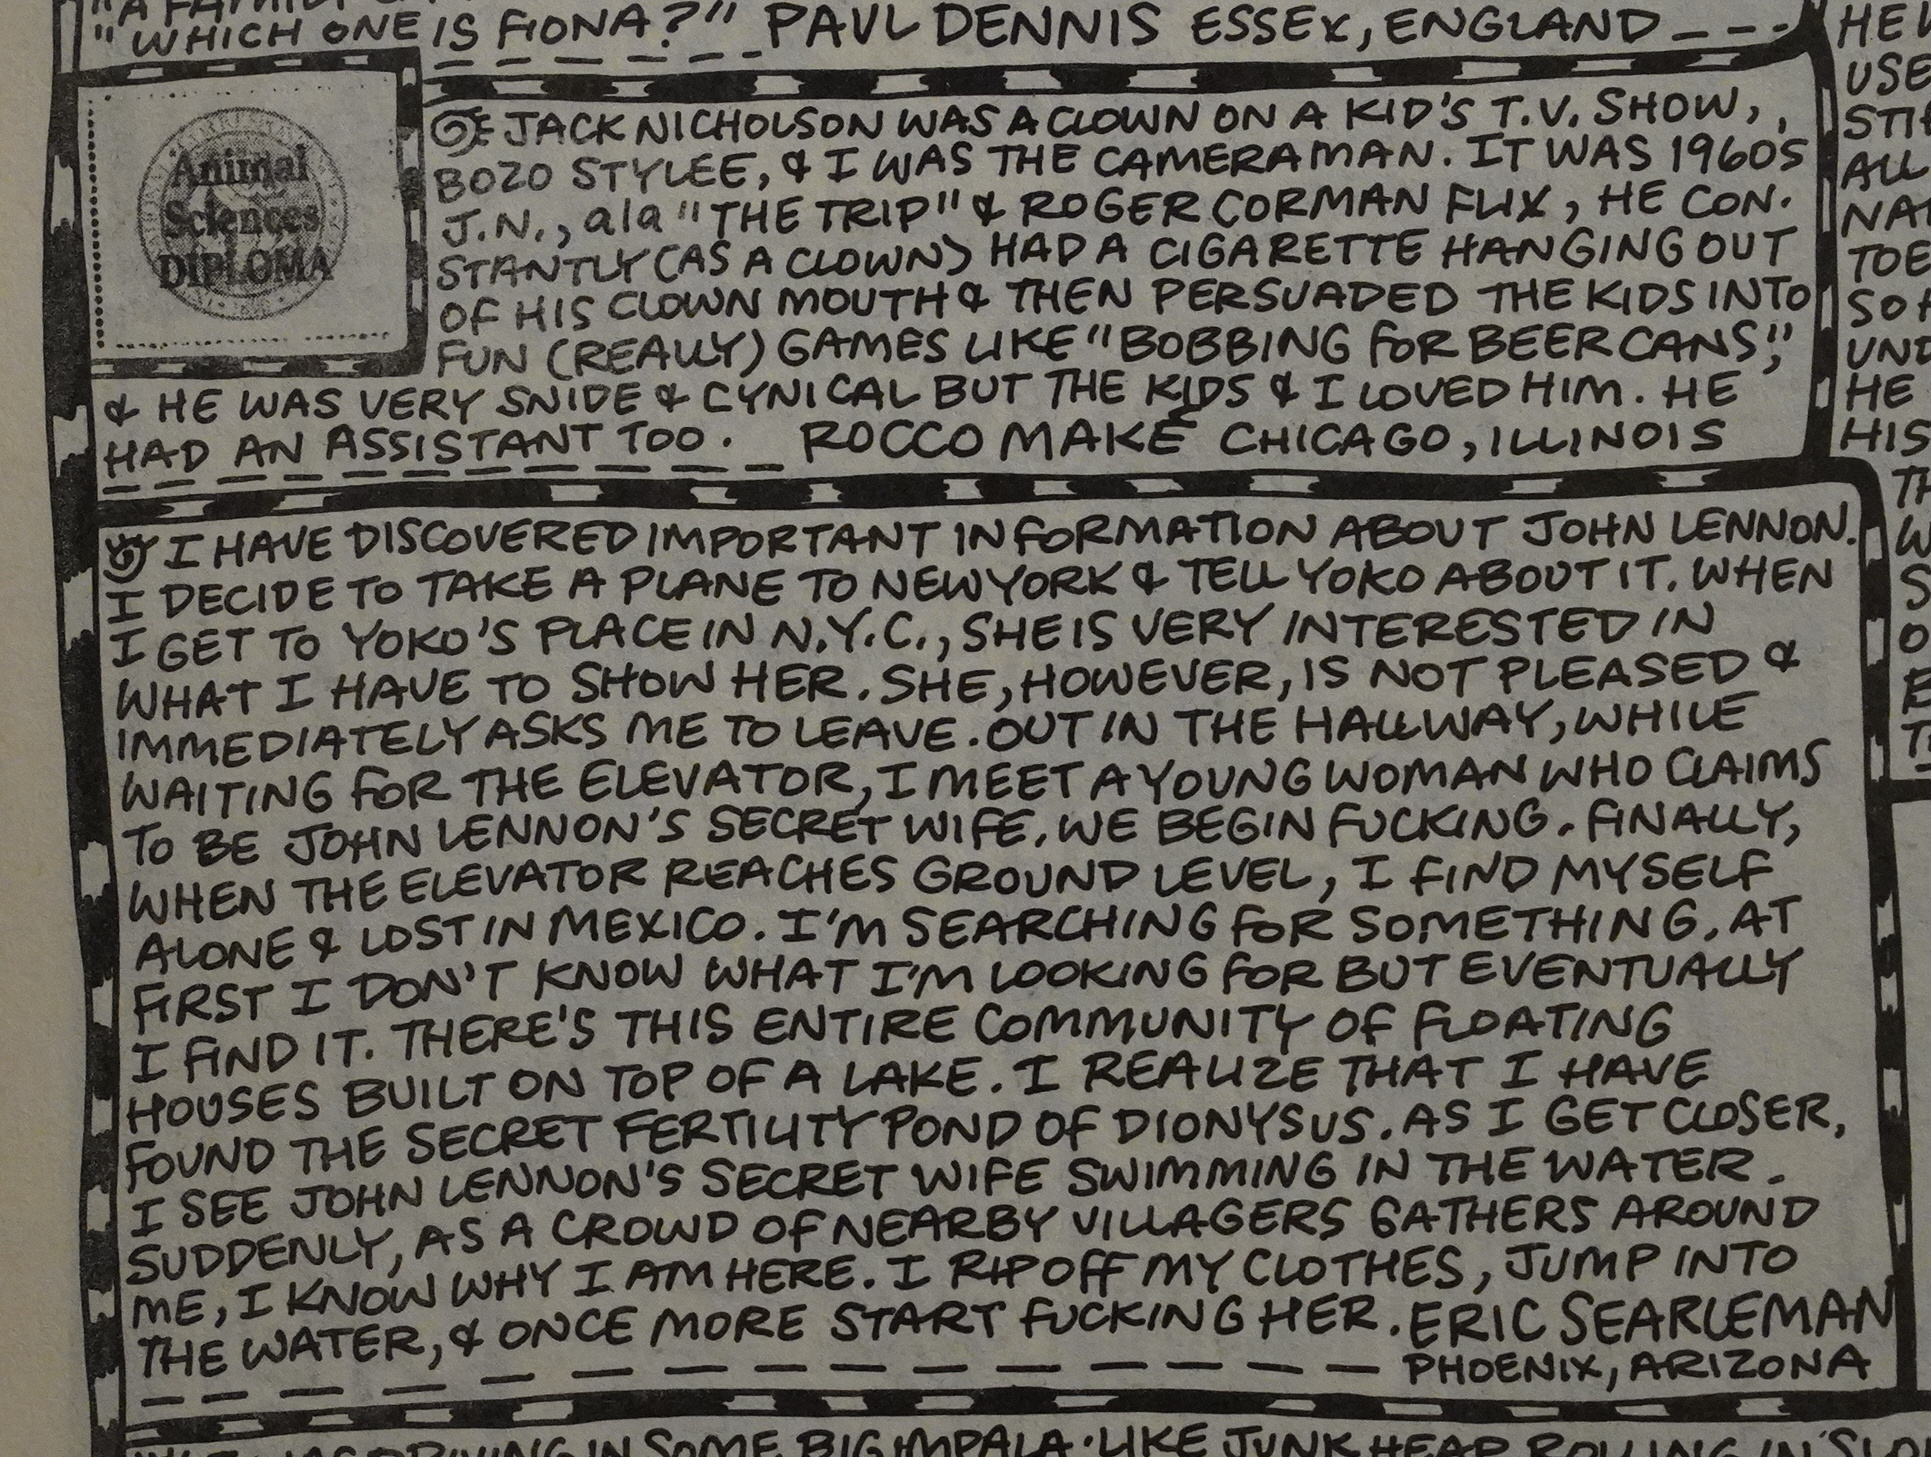 "WHICH ONE IS FIONA?" PAUL DENNIS ESSEX, ENGLAND
Animal
Sciences
DIPLOMA
JACK NICHOLSON WAS A CLOWN ON A KID'S T.V. SHOW,
BOZO STYLEE, & I WAS THE CAMERAMAN. IT WAS 1960S
J.N., ala "THE TRIP" & ROGER CORMAN FLIX, HE CON.
STANTLY (AS A CLOWN) HAD A CIGARETTE HANGING OUT
OF HIS CLOWN MOUTH & THEN PERSUADED THE KIDS INTO
FUN (REALLY) GAMES LIKE "BOBBING FOR BEER CANS",
& HE WAS VERY SNIDE & CYNICAL BUT THE KIDS & I LOVED HIM. HE
HAD AN ASSISTANT TOO. ROCCO MAKE CHICAGO, ILLINOIS
I HAVE DISCOVERED IMPORTANT INFORMATION ABOUT JOHN LENNON.
I DECIDE TO TAKE A PLANE TO NEW YORK & TELL YOKO ABOUT IT. WHEN
I GET TO YOKO'S PLACE IN N.Y.C., SHE IS VERY INTERESTED IN
WHAT I HAVE TO SHOW HER. SHE, HOWEVER, IS NOT PLEASED &
IMMEDIATELY ASKS ME TO LEAVE. OUT IN THE HALLWAY, WHILE
WAITING FOR THE ELEVATOR, I MEET A YOUNG WOMAN WHO CLAIMS
TO BE JOHN LENNON'S SECRET WIFE. WE BEGIN FUCKING. FINALLY,
WHEN THE ELEVATOR REACHES GROUND LEVEL, I FIND MYSELF
ALONE & LOST IN MEXICO. I'M SEARCHING FOR SOMETHING. AT
FIRST I DON'T KNOW WHAT I'M LOOKING FOR BUT EVENTUALLY
I FIND IT. THERE'S THIS ENTIRE COMMUNITY OF FLOATING
HOUSES BUILT ON TOP OF A LAKE. I REALIZE THAT I HAVE
FOUND THE SECRET FERTILITY POND OF DIONYSUS. AS I GET CLOSER,
I SEE JOHN LENNON'S SECRET WIFE SWIMMING IN THE WATER.
SUDDENLY, AS A CROWD OF NEARBY VILLAGERS GATHERS AROUND
ME, I KNOW WHY I AM HERE. I RIP OFF MY CLOTHES, JUMP INTO
THE WATER, & ONCE MORE START FUCKING HER. ERIC SEARLEMAN
PHOENIX, ARIZONA
DRIVING IN SOME BIG IMPALA. LIKE JUNK HEAP ROLLING IN
HE
USE
ALL
TOE
SO
HE
HIS